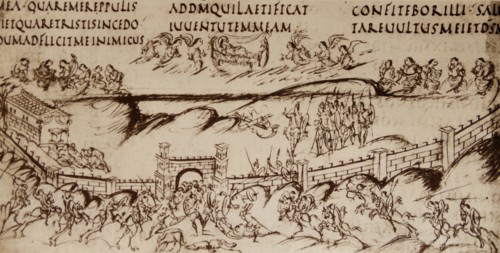 MEA·QUAREMEREPPULIS
TIETQUARETRISTISINCEDO
DUMADFLIGITMEINIMICUS
ADDMQUILAETIFICAT
IUUENTUTEMMEAM
CONFITEBORILLI·SALU
TAREUULTUSMEIETDSM